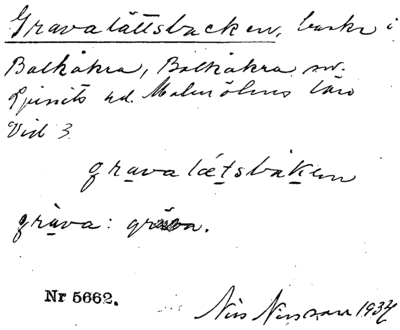 Gravalättsbacken, backe i
Balkåkra, Balkåkra sn.
Ljunits hd. Malmöhus län
Vid 3.
gravalætsbåken
gràva: gräva.
Nr 5662.
Nils Nilsson 1934